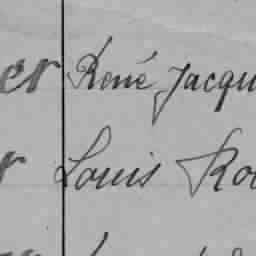 er René Jacqu
r Louis Ro